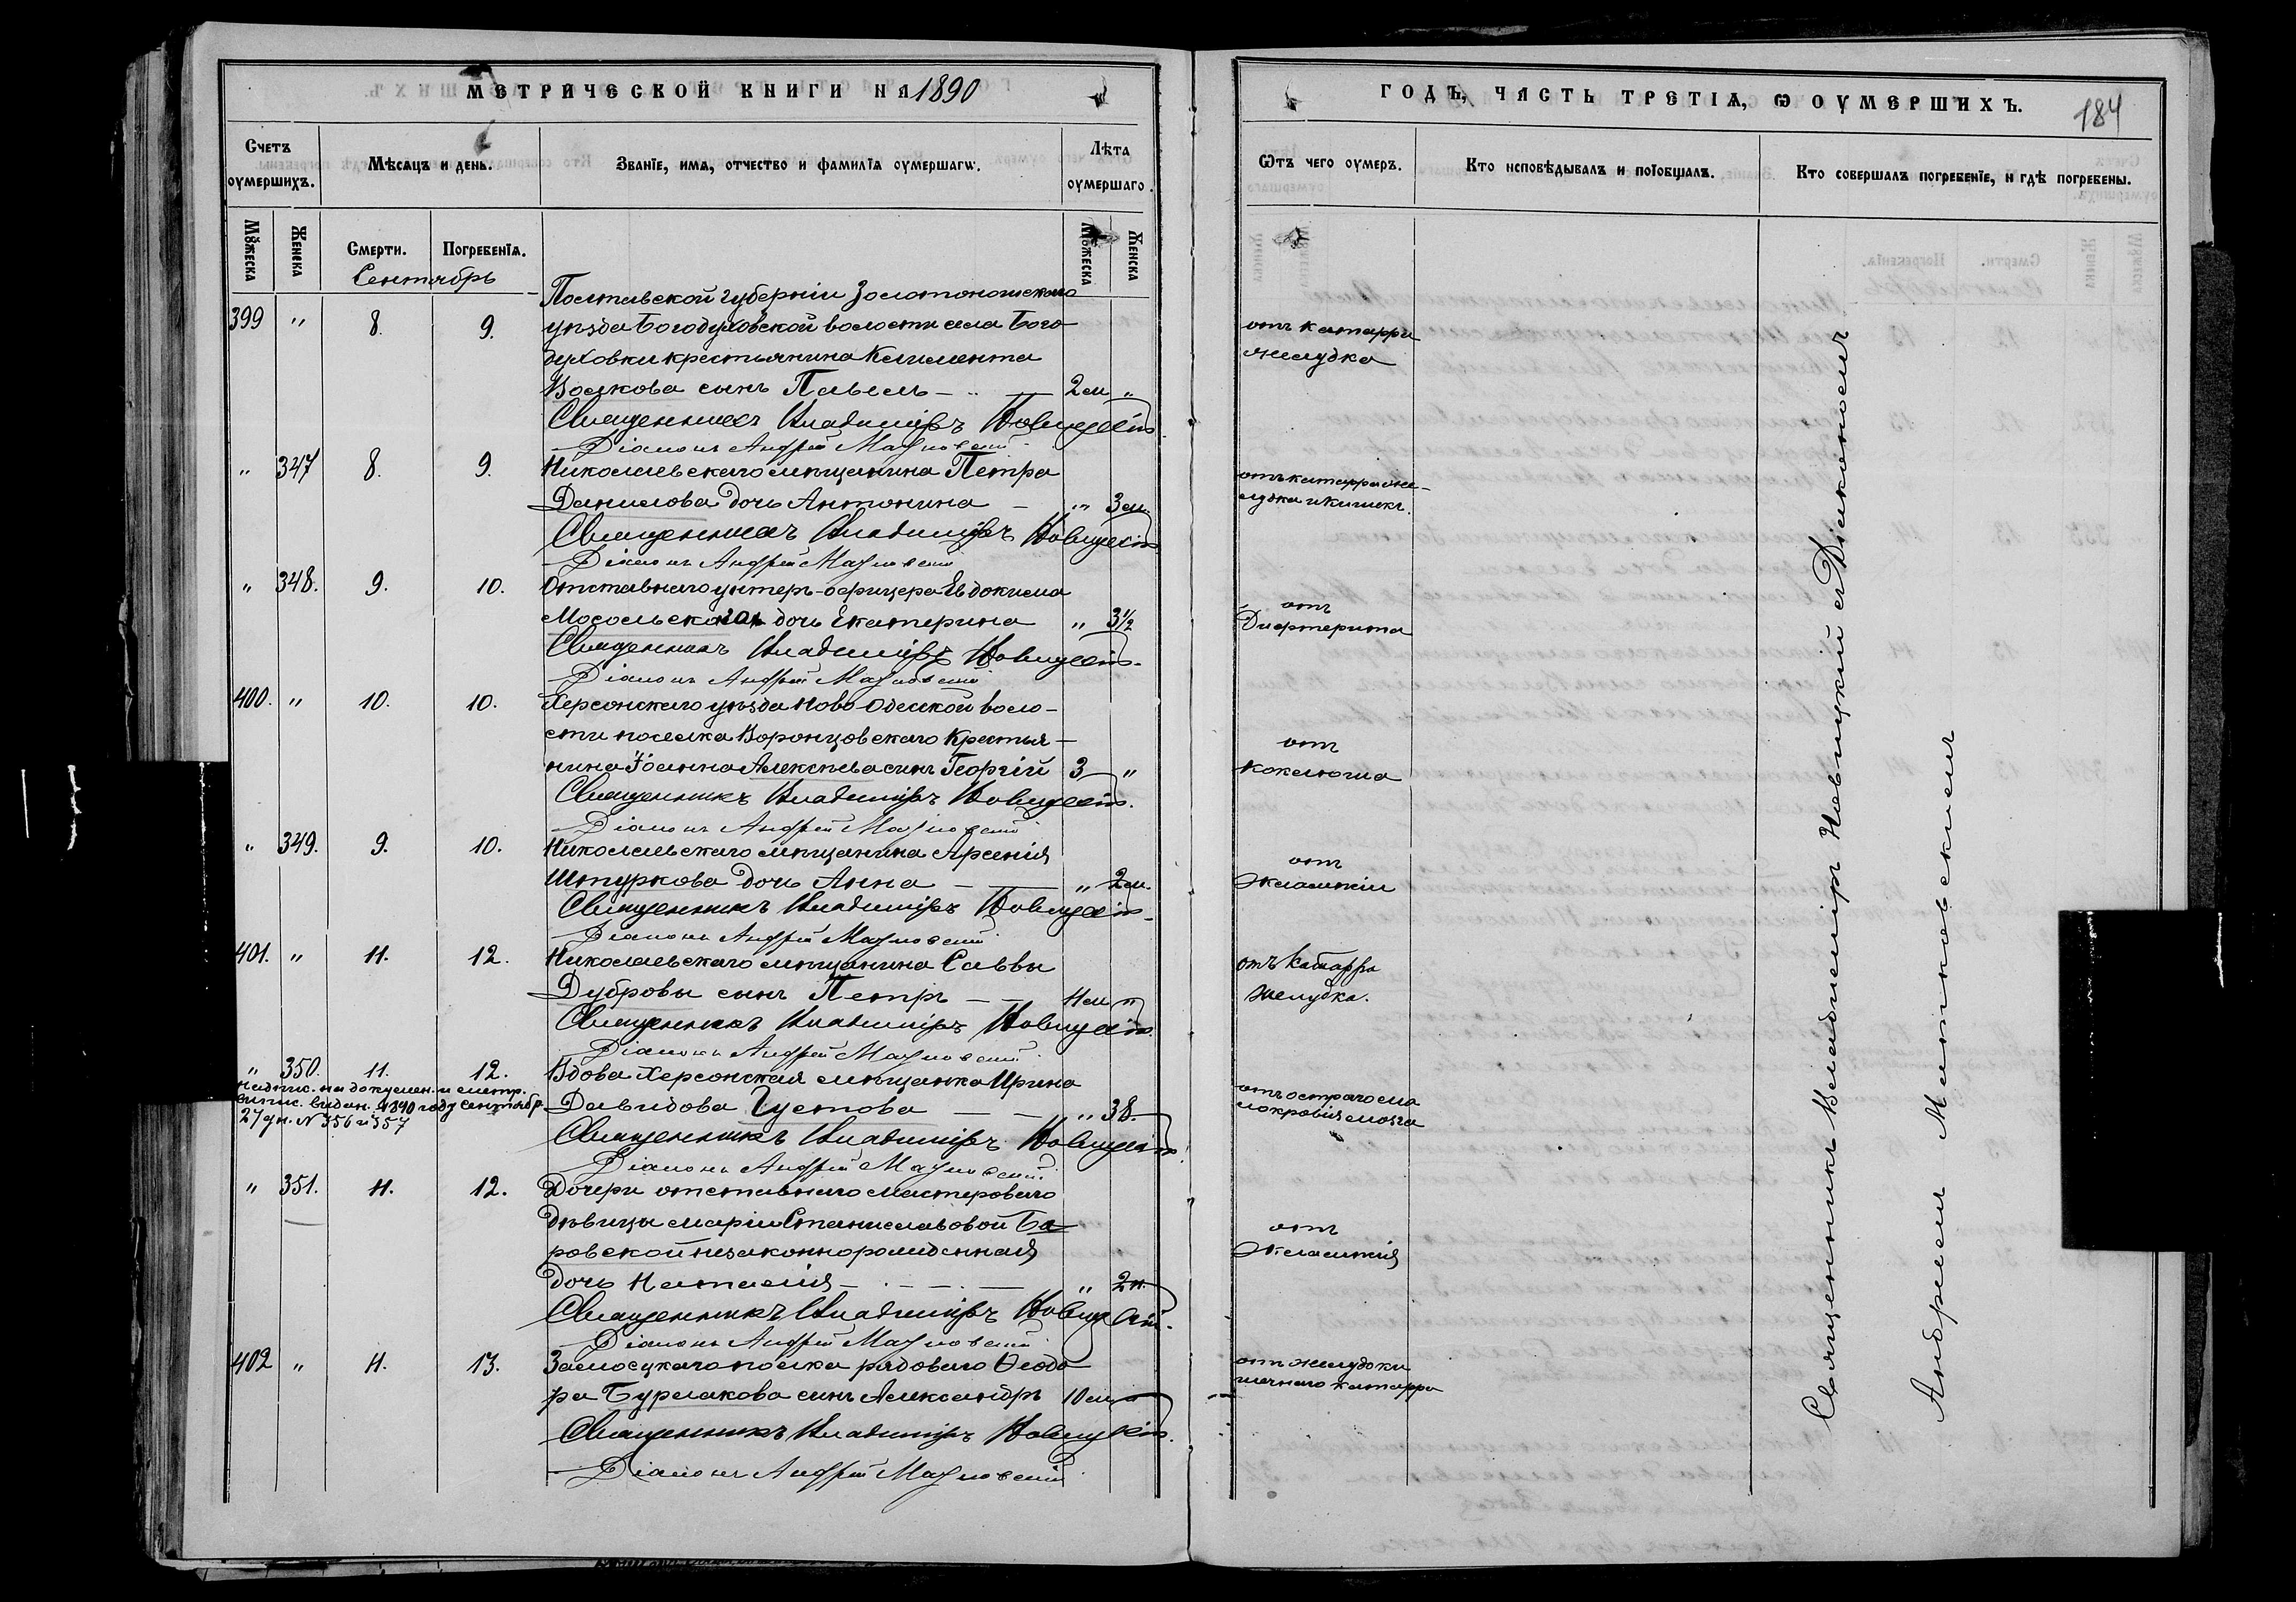 МЕТРИЧЕСКОЙ КНИГИ НА 1890
ГОДЪ, ЧАСТЬ ТРЕТІѦ, Ѡ ОУМЕРШИХЪ.
184
Счетъ оумершихъ.
Мѣсяцъ и день.
Званїе, имѧ, отчество и фамилїѧ оумершагѡ.
Лѣта оумершаго.
Ѿтъ чего оумеръ.
Кто исповѣдывалъ и поїобщалъ.
Кто совершалъ погребенїе, и гдѣ погребены.
Мѹжеска
Женска
Смерти.
Погребенїѧ.
Мѹжеска
Женска
Сентябрь
Полтавской губерніи Золотоношскаго
399 " 8. 9. уѣзда Богодуховской волости села Бого-
духовки крестьянина Климента
Волкова сынъ Павелъ 2 м. "
отъ катарра
желудка
Священникъ Владиміръ Новицкій
Діаконъ Андрей
" 347 8. 9. Николаевскаго мѣщанина Петра
Данилова дочь Антонина " 3 м.
отъ катарра же-
лудка и кишекъ.
Священникъ Владиміръ Новицкій
Діаконъ Андрей
" 348. 9. 10. Отставнаго унтеръ-офицера Евдокима
дочь Екатерина " 3½
отъ
Дифтерита
Священникъ Владиміръ Новицкій
Діаконъ Андрей
400. " 10. 10. Херсонскаго уѣзда Ново-Одесской воло-
сти поселка Воронцовскаго крестья-
нина Іоанна Алексѣева сынъ Георгій 3 "
отъ
коклюша
Священникъ Владиміръ Новицкій
Діаконъ Андрей
" 349. 9. 10. Николаевскаго мѣщанина Арсенія
Штуркова дочь Анна " 2 м.
отъ
эклампсіи
Священникъ Владиміръ Новицкій
Діаконъ Андрей
401. " 11. 12. Николаевскаго мѣщанина Саввы
Дубровы сынъ Петръ 4 м. "
отъ катарра
желудка.
Священникъ Владиміръ Новицкій
Діаконъ Андрей
" 350. 11. 12. Вдова Херсонская мѣщанка Ирина
Давидова Густова " 38
надпис. на докумен. и метр.
выпис. выдан. 1890 году Сентябр.
27 дн. № 356 и 357
отъ остраго ма
локровія мозга
Священникъ Владиміръ Новицкій
Діаконъ Андрей
" 351. 11. 12. Дочери отставнаго мастероваго
дѣвицы Маріи Станиславовой Ба-
ровской незаконнорожденная
дочь Наталія " 2 н.
отъ
эклампсія
Священникъ Владиміръ Новицкій
Діаконъ Андрей
402 " 11. 13. Замосцкаго полка рядоваго Ѳеодо
ра Бурлакова сынъ Александръ 10 м. "
отъ желудоки
шечнаго катарра
Священникъ Владиміръ Новицкій
Діаконъ Андрей
Священникъ Владиміръ Новицкій съ Діакономъ
Андреемъ